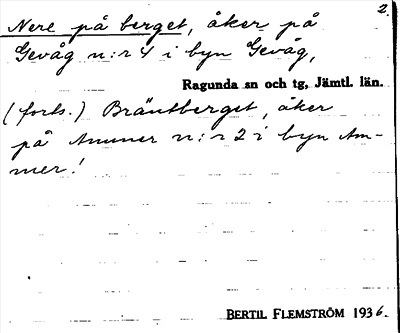 2.
Nere på berget, åker på
Gevåg n:r 4 i byn Gevåg,
Ragunda sn och tg, Jämtl. län.
(forts.) Bräntberget, åker
på Ammer n:r 2 i byn Am-
mer!
BERTIL FLEMSTRÖM 1936.